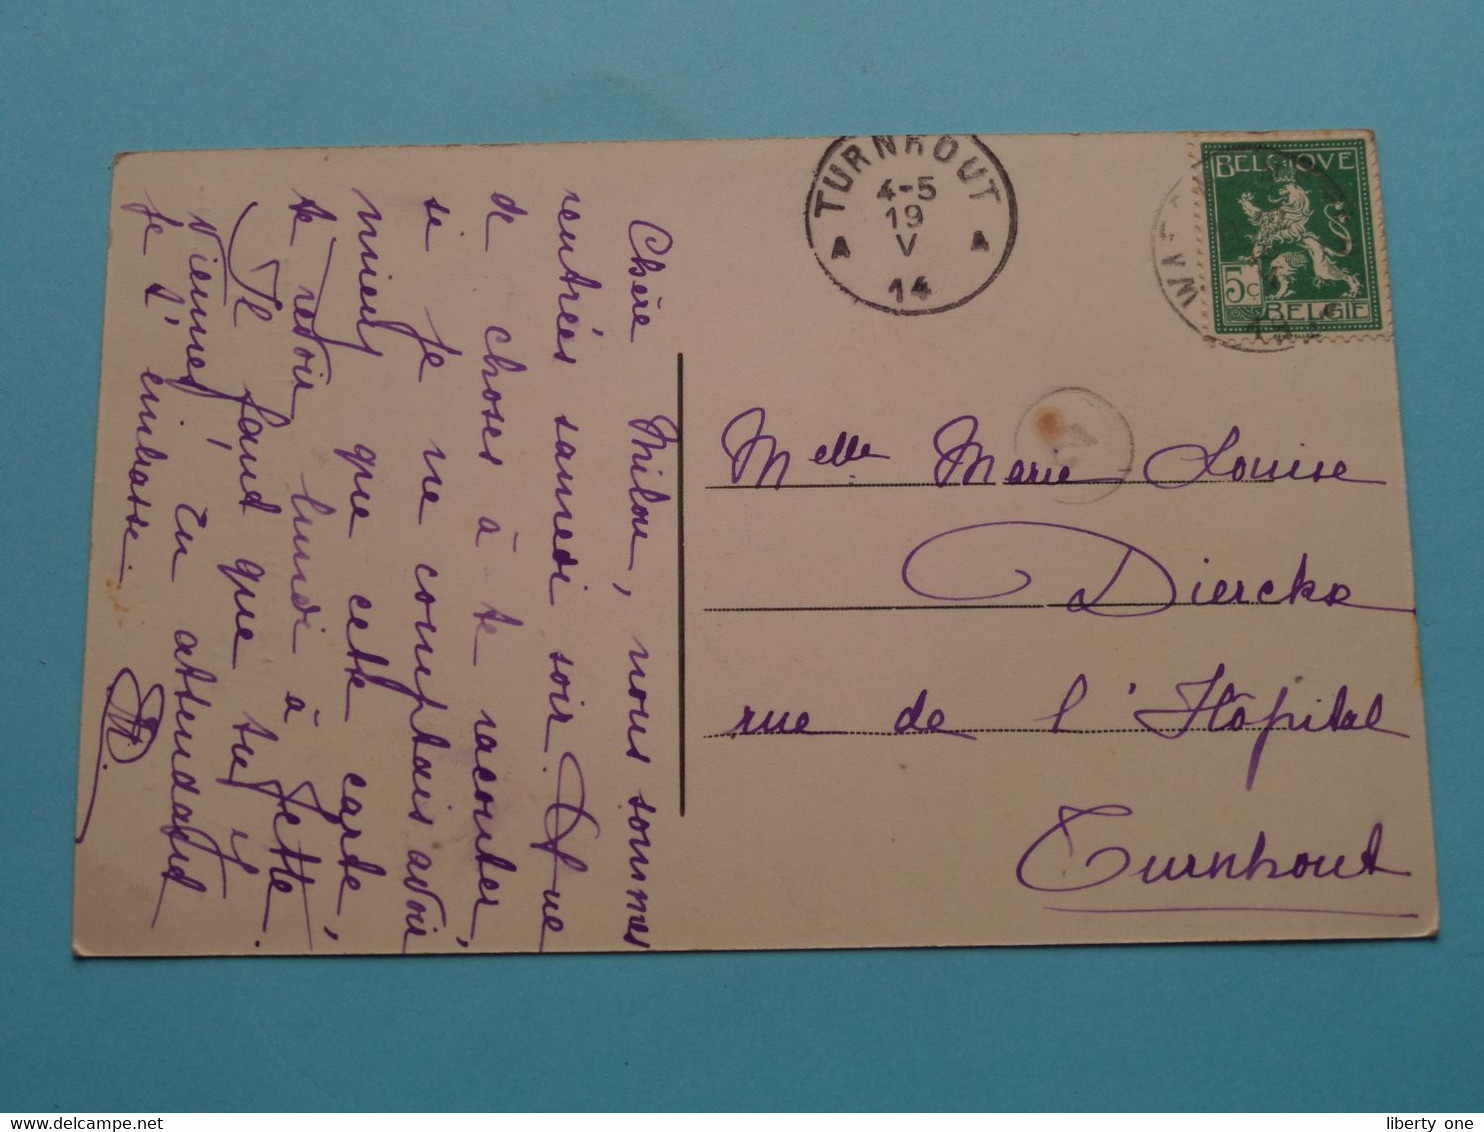 Chère Milou, nous sommes
rentrées samedi soir. Que
de choses à te raconter,
si je ne comptais avoir
mieux que cette carte,
te revoir lundi à Jette.
Il faut que tu y
viennes! En attendant
je t'embrasse.
TURNHOUT
4-5
19
V
14
A A
BELGIQUE
5c
BELGIE
Melle Marie Louise
Dierckx
rue de l'Hôpital
Turnhout
liberty one